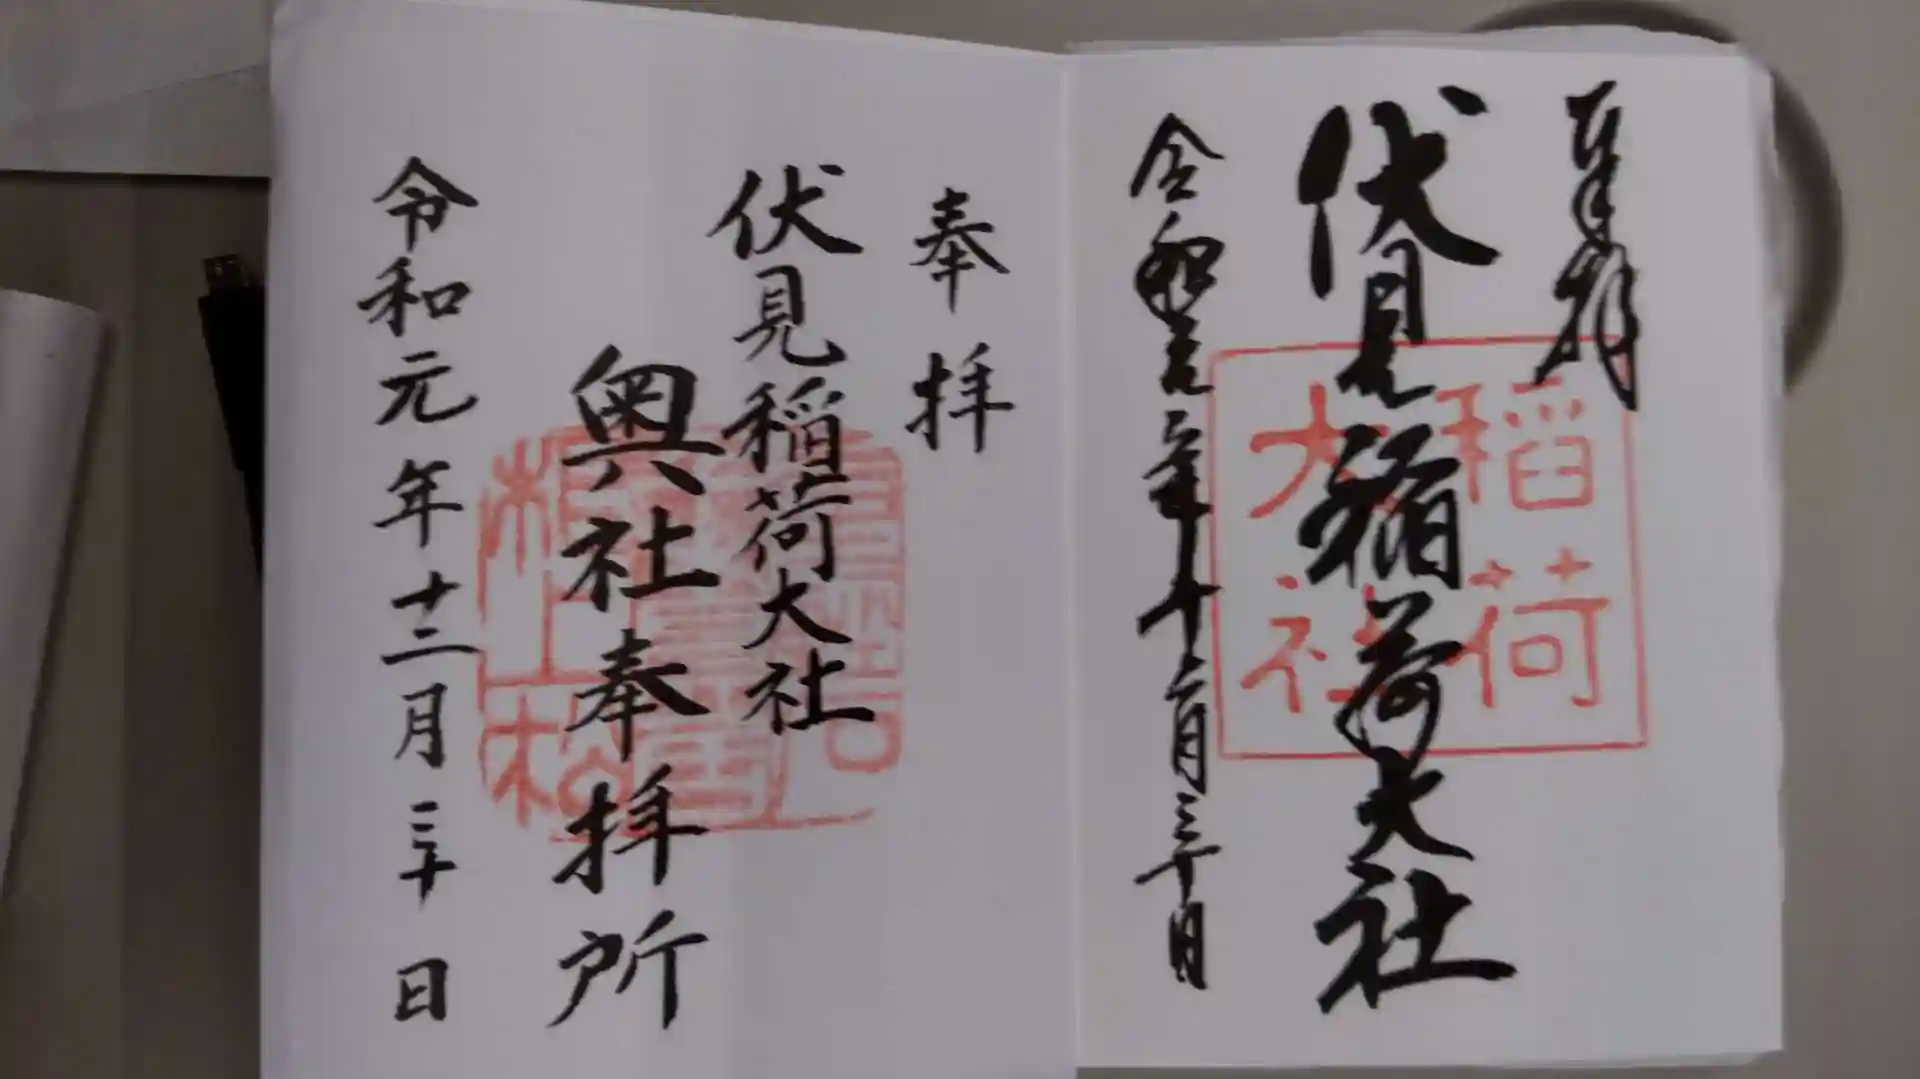 奉拝
伏見稲荷大社
稲荷
大社
令和元年十二月三十日
奉拝
伏見稲荷大社
奥社奉拝所
令和元年十二月三十日